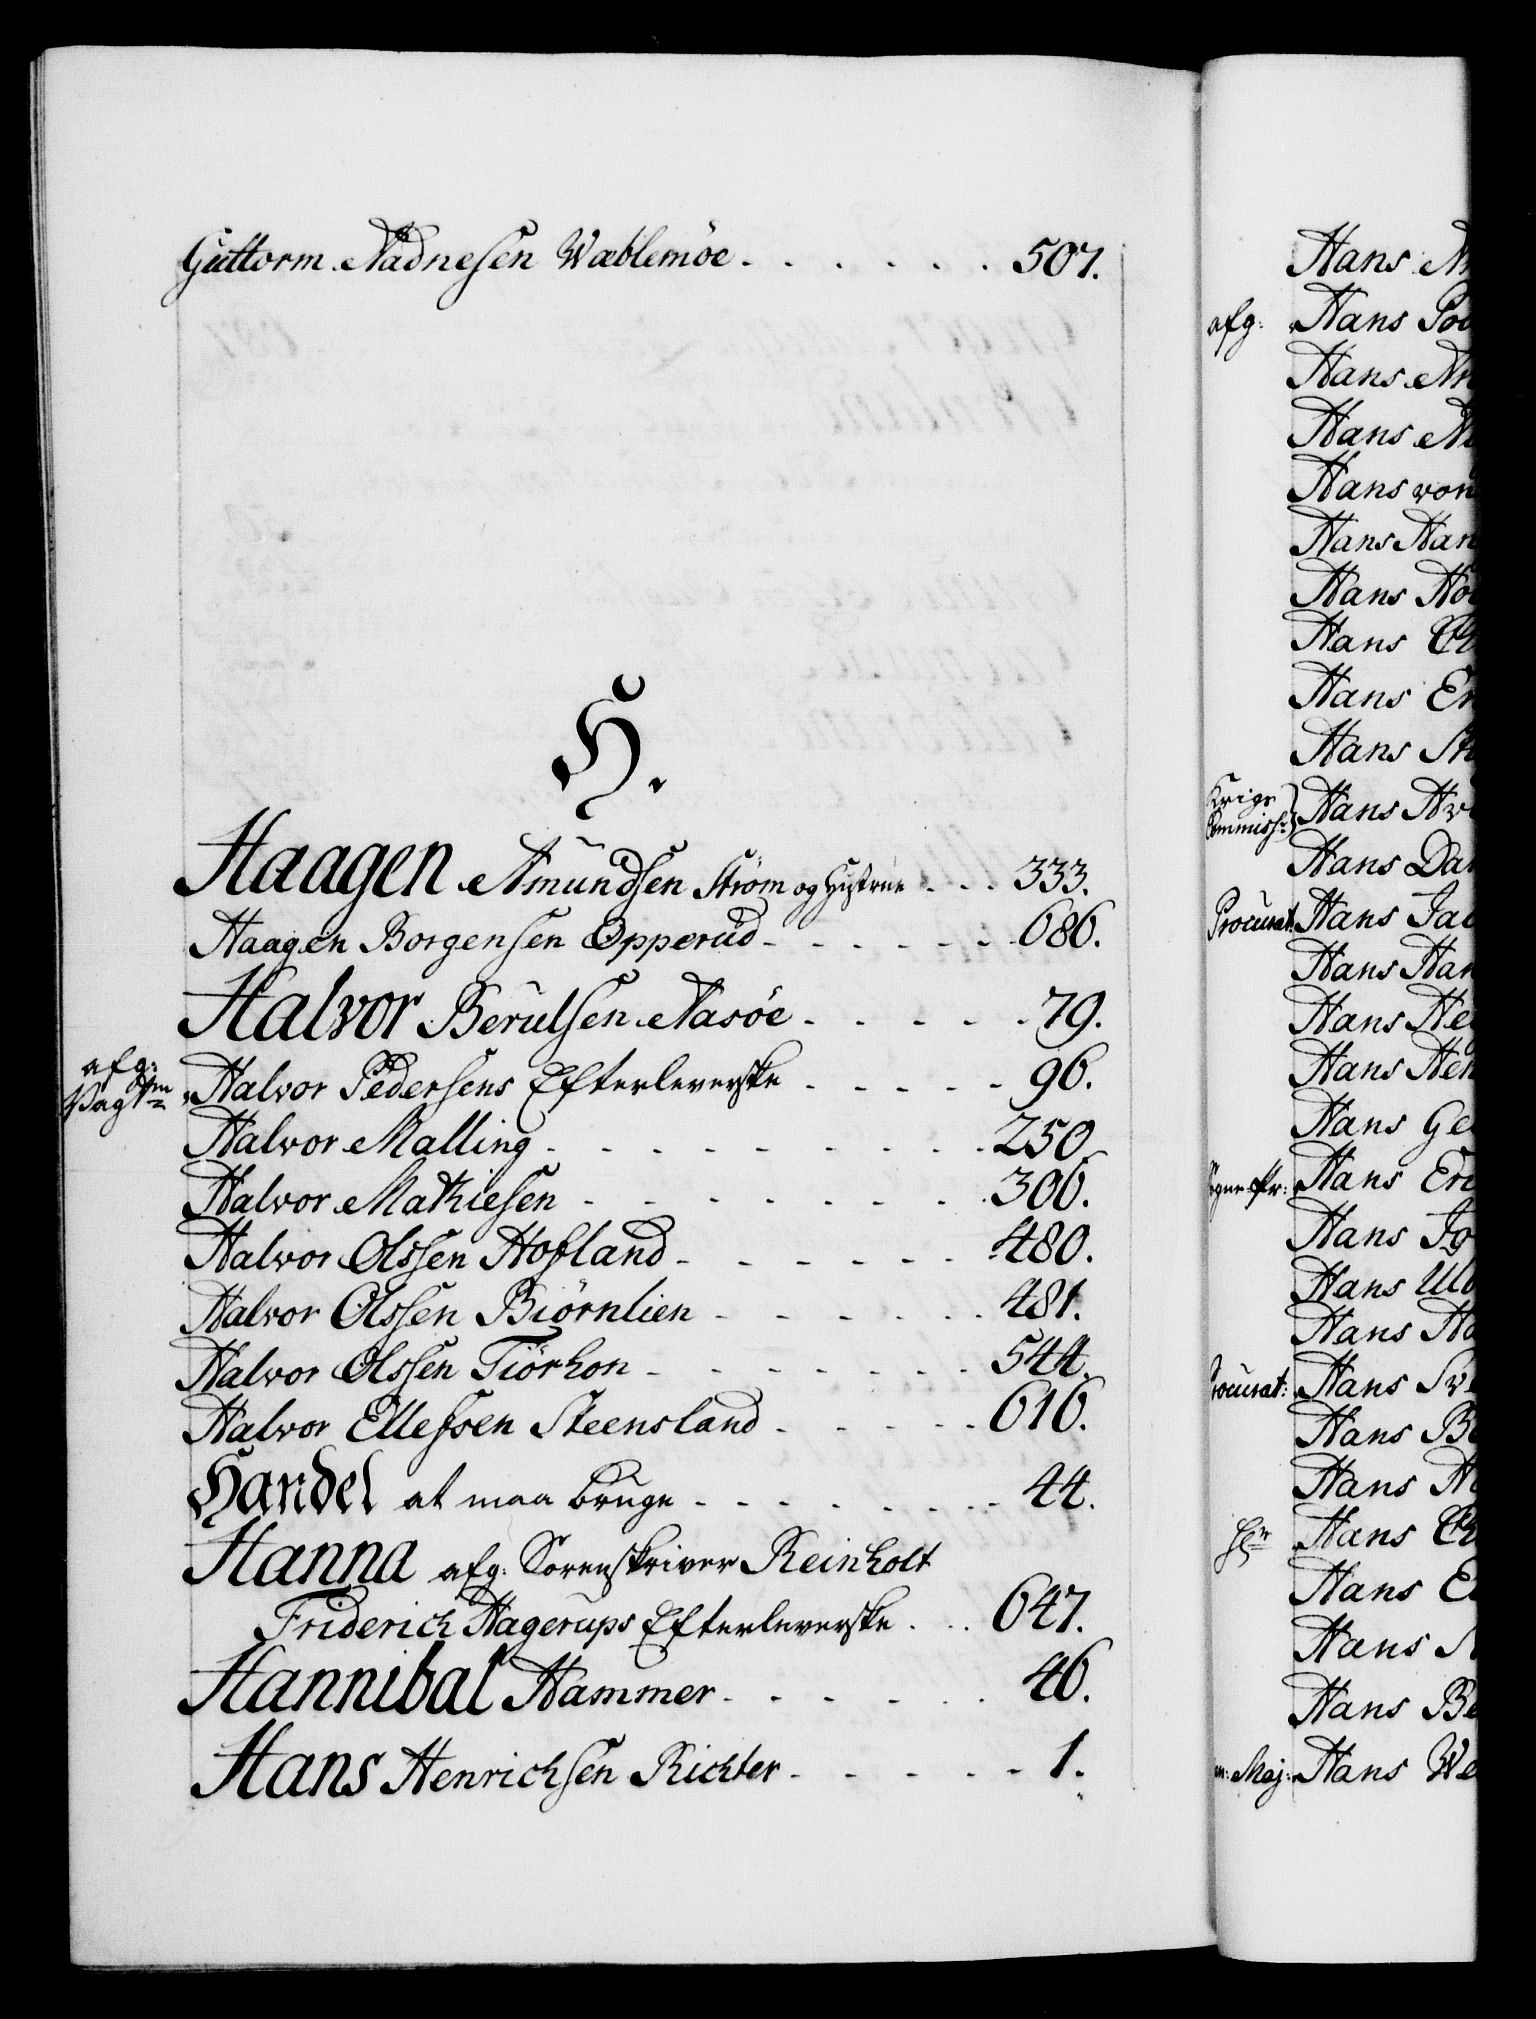 Guttorm Aadnesen Wablemöe . . . . . . 507.
H.
Haagen Amundsen Ström og Hustrue . . . 333.
Haagen Borgensen Opperud . . . . . . 686.
Halvor Berulsen Aasöe . . . . . 79.
afg: Vagtm Halvor Pedersens Efterleverske . . . . . 96.
Halvor Malling . . . . . . . . . 250.
Halvor Mathiesen . . . . . . . . 306.
Halvor Olssen Hofland . . . . . . 480.
Halvor Olssen Biörnlien . . . . . . 481.
Halvor Olssen Tiörhon . . . . . . . 544.
Halvor Ellefsen Steensland . . . . . 616.
Handel at maa bruge . . . . . . . . 44.
Hanna afg: Sorenskriver Reinholt
Friderich Hagerups Efterleverske . . . 647.
Hannibal Hammer . . . . . . 46.
Hans Henrichsen Richter . . . . . 1.
Hans
afg: Hans
Hans
Hans
Hans von
Hans
Hans
Hans
Hans
Hans
Krigs Commiss: Hans
Hans
Procurat: Hans
Hans
Hans
Hans
Hans
Hans
Hans
Hans
Hans
Hans
Hans
Hans
Hr Hans
Hans
Hans
Hans
Maj: Hans